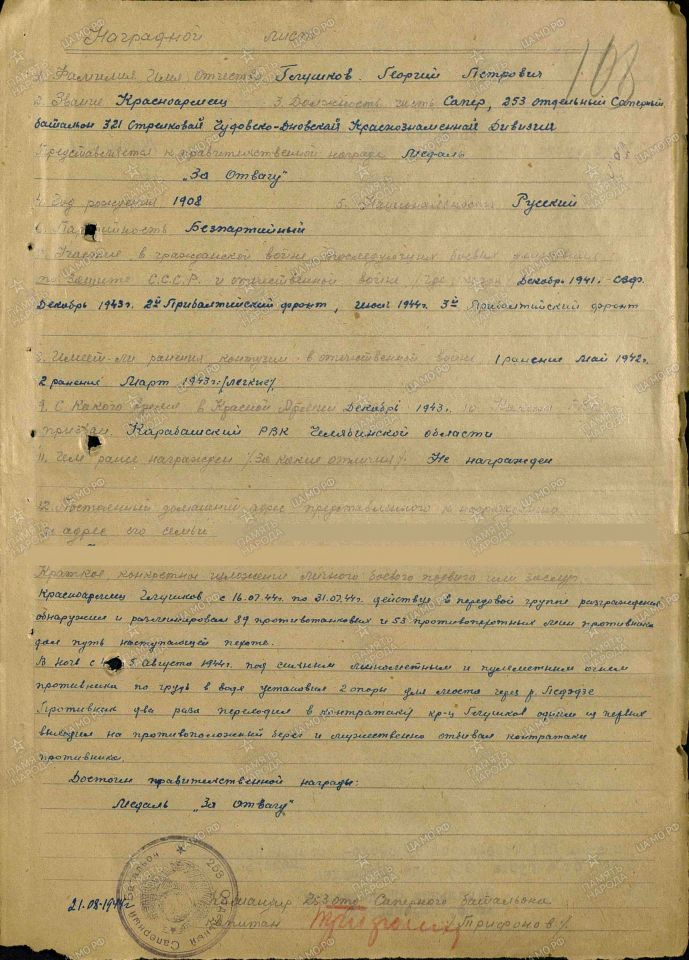 Наградной лист
108
1. Фамилия Имя Отчество Глушков Георгий Петрович
2. Звание Красноармеец 3. Должность часть Сапер, 253 отдельный Саперный
батальон 321 Стрелковой Чудовско-Дновской Краснознаменной Дивизии
Представляется к правительственной награде Медаль
„За Отвагу“
4. Год рождения 1908 5. Национальность Русский
6. Партийность Безпартийный
7. Участие в гражданской войне последующих боевых действиях
по защите С.С.С.Р. и отечественной войне (где, когда) Декабрь 1941. СЗФ.
Декабрь 1943г. 2й Прибалтийский фронт, июль 1944г. 3й Прибалтийский фронт
8. Имеет-ли ранения контузии в отечественной войне 1 ранение Май 1942г.
2 ранение Март 1943г. /легкие/
9. С какого время в Красной Армии Декабрь 1943г. 10
призван Карабашский РВК Челябинской области
11. Чем ранее награжден /За какие отличия/. Не награжден
12. Постоянный домашний адрес представленного к награждению
и адрес его семьи
Краткое, конкретное изложение личного боевого подвига или заслуг
Красноармеец Глушков с 16.07.44г. по 31.07.44г. действуя в передовой группе разграждения
обнаружил и разминировал 89 противотанковых и 53 противопехотных мин противника
дал путь наступающей пехоте.
В ночь с 5 Августа 1944г. под сильным минометным и пулеметным огнем
противника по грудь в воде установил 2 опоры для моста через р. Педэдзе
Противник два раза переходил в контратаку кр-ц Глушков одним из первых
выходил на противоположный берег и мужественно отбивал контратаки
противника.
Достоин правительственной награды:
Медаль „За отвагу“
21.08.1944г Командир 253 отд Саперного батальона
Капитан /Трифонов/.
253 Отдельный Саперный Батальон
ПАМЯТЬ НАРОДА
ЦАМО.РФ